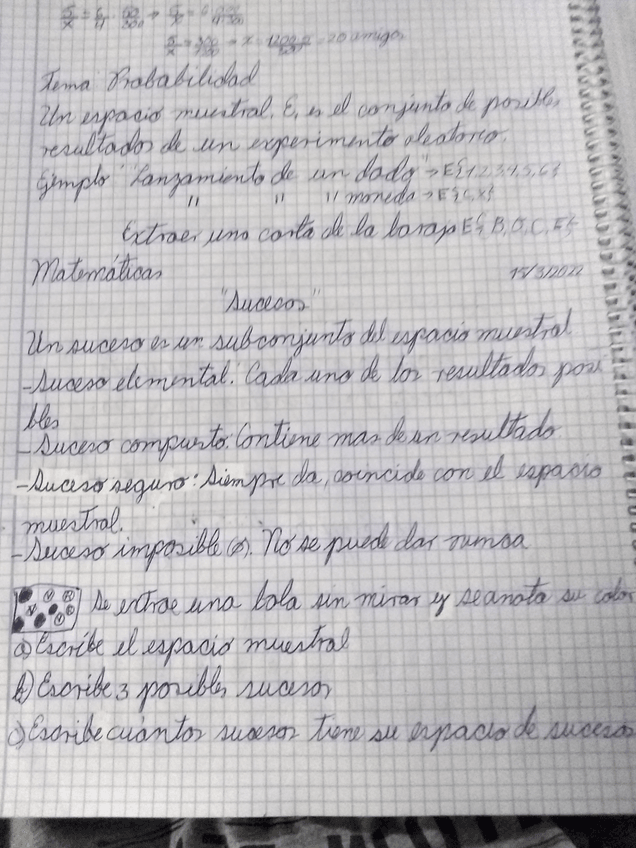 5/x = 6/4 · 
5/x = 300/ → x = 1200/ = 20 amigos
Tema Probabilidad
Un espacio muestral, E, es el conjunto de posibles
resultados de un experimento aleatorio.
Ejmplo "Lanzamiento de un dado" → E{1,2,3,4,5,6}
" " " moneda → E{C,X}
Extraer una carta de la baraja E{B,O,C,E}
Matemáticas 15/3/2022
"Sucesos"
Un suceso es un subconjunto del espacio muestral
-Suceso elemental: Cada uno de los resultados posi
bles
-Suceso compuesto: Contiene mas de un resultado
-Suceso seguro: Siempre da, coincide con el espacio
muestral.
-Suceso imposible (ø). No se puede dar nunca
Se extrae una bola sin mirar y se anota su color
a) Escribe el espacio muestral
b) Escribe 3 posibles sucesos
c) Escribe cuántos sucesos tiene su espacio de sucesos